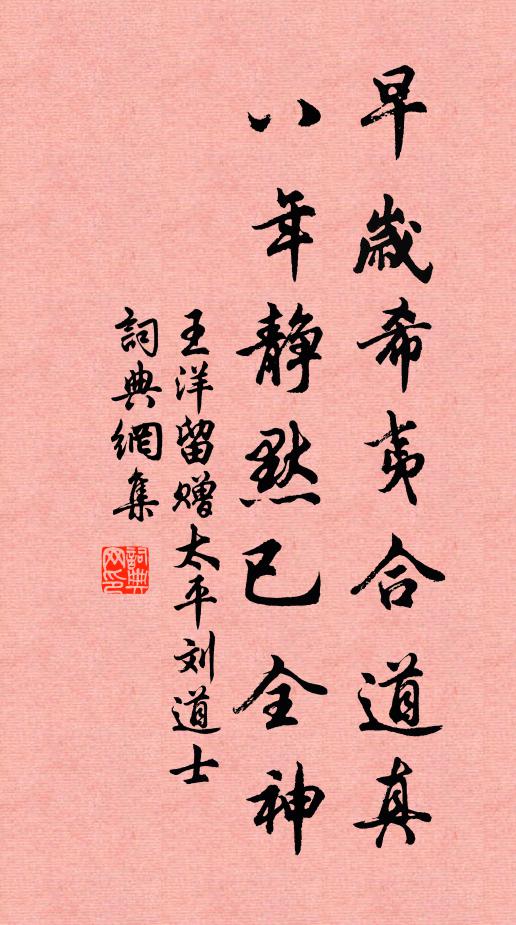 早歲希夷合道真
八年静默已全神
王洋留赠太平刘道士
詞典網集
詞典网印